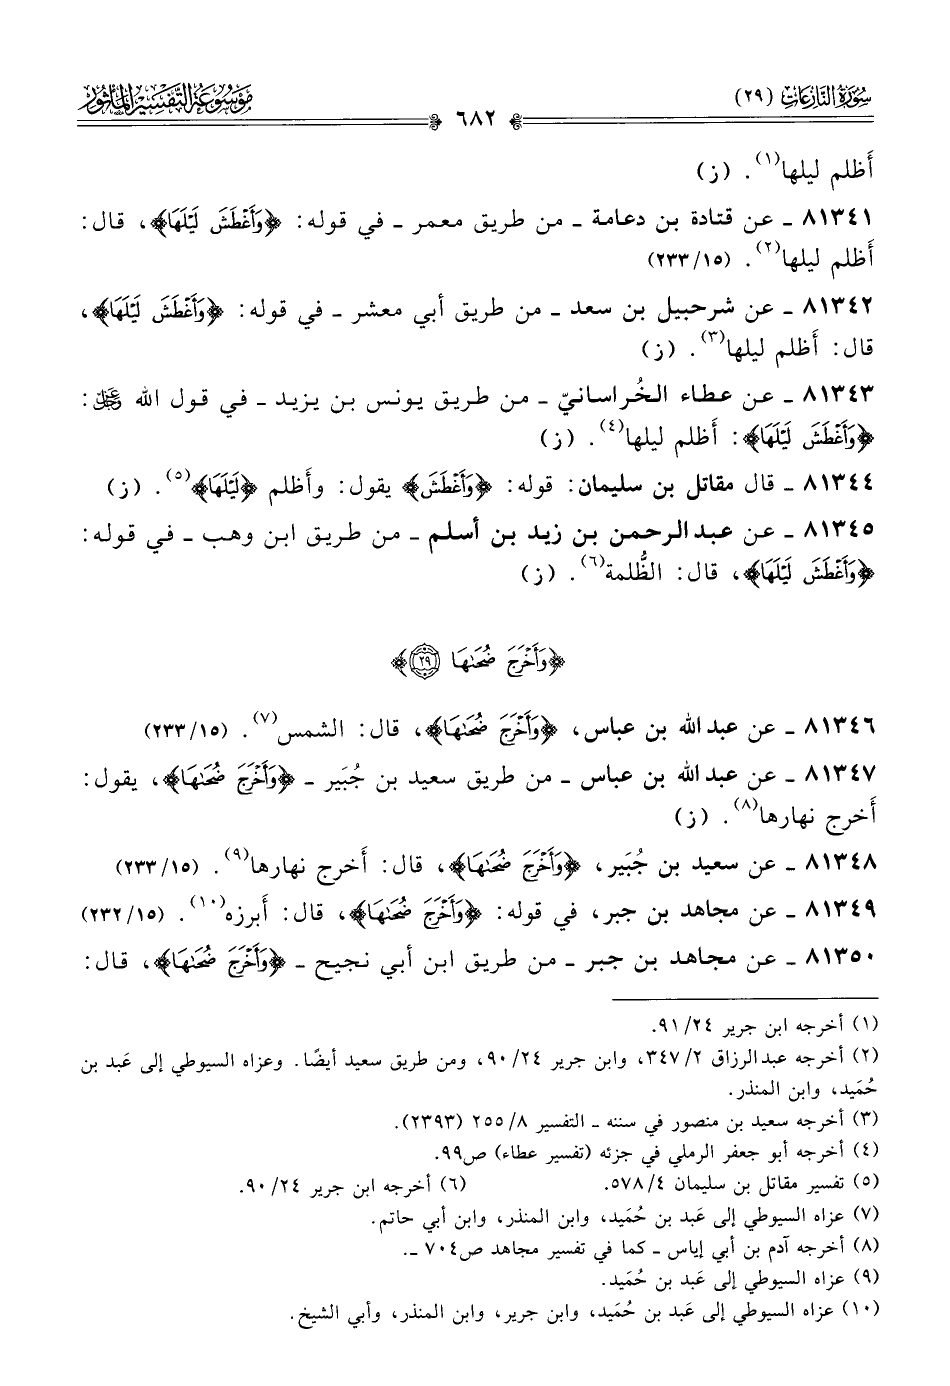 سُورَةُ النَّازِعَاتِ (٢٩)
٦٨٢
مَوْسُوعَةُ التَّفْسِيرِ المَأْثُور
أَظلم ليلها(١). (ز)
٨١٣٤١ ـ عن قتادة بن دعامة ـ من طريق معمر ـ في قوله: ﴿وَأَغْطَشَ لَيْلَهَا﴾، قال:
أَظلم ليلها(٢). (٢٣٣/١٥)
٨١٣٤٢ ـ عن شرحبيل بن سعد ـ من طريق أبي معشر ـ في قوله: ﴿وَأَغْطَشَ لَيْلَهَا﴾،
قال: أَظلم ليلها(٣). (ز)
٨١٣٤٣ ـ عن عطاء الخُراسانيّ ـ من طريق يونس بن يزيد ـ في قول الله عز وجل:
﴿وَأَغْطَشَ لَيْلَهَا﴾: أَظلم ليلها(٤). (ز)
٨١٣٤٤ ـ قال مقاتل بن سليمان: قوله: ﴿وَأَغْطَشَ﴾ يقول: وأَظلم ﴿لَيْلَهَا﴾(٥). (ز)
٨١٣٤٥ ـ عن عبدالرحمن بن زيد بن أسلم ـ من طريق ابن وهب ـ في قوله:
﴿وَأَغْطَشَ لَيْلَهَا﴾، قال: الظُّلمة(٦). (ز)
﴿وَأَخْرَجَ ضُحَىٰهَا ۝٢٩﴾
٨١٣٤٦ ـ عن عبدالله بن عباس، ﴿وَأَخْرَجَ ضُحَىٰهَا﴾، قال: الشمس(٧). (٢٣٣/١٥)
٨١٣٤٧ ـ عن عبدالله بن عباس ـ من طريق سعيد بن جُبَير ـ ﴿وَأَخْرَجَ ضُحَىٰهَا﴾، يقول:
أَخرج نهارها(٨). (ز)
٨١٣٤٨ ـ عن سعيد بن جُبَير، ﴿وَأَخْرَجَ ضُحَىٰهَا﴾، قال: أَخرج نهارها(٩). (٢٣٣/١٥)
٨١٣٤٩ ـ عن مجاهد بن جبر، في قوله: ﴿وَأَخْرَجَ ضُحَىٰهَا﴾، قال: أَبرزه(١٠). (٢٣٢/١٥)
٨١٣٥٠ ـ عن مجاهد بن جبر ـ من طريق ابن أبي نجيح ـ ﴿وَأَخْرَجَ ضُحَىٰهَا﴾، قال:
(١) أخرجه ابن جرير ٩١/٢٤.
(٢) أخرجه عبدالرزاق ٣٤٧/٢، وابن جرير ٩٠/٢٤، ومن طريق سعيد أيضًا. وعزاه السيوطي إلى عَبد بن
حُمَيد، وابن المنذر.
(٣) أخرجه سعيد بن منصور في سننه ـ التفسير ٢٥٥/٨ (٢٣٩٣).
(٤) أخرجه أبو جعفر الرملي في جزئه (تفسير عطاء) ص٩٩.
(٥) تفسير مقاتل بن سليمان ٥٧٨/٤. (٦) أخرجه ابن جرير ٩٠/٢٤.
(٧) عزاه السيوطي إلى عَبد بن حُمَيد، وابن المنذر، وابن أبي حاتم.
(٨) أخرجه آدم بن أبي إياس ـ كما في تفسير مجاهد ص٧٠٤ ـ.
(٩) عزاه السيوطي إلى عَبد بن حُمَيد.
(١٠) عزاه السيوطي إلى عَبد بن حُمَيد، وابن جرير، وابن المنذر، وأبي الشيخ.